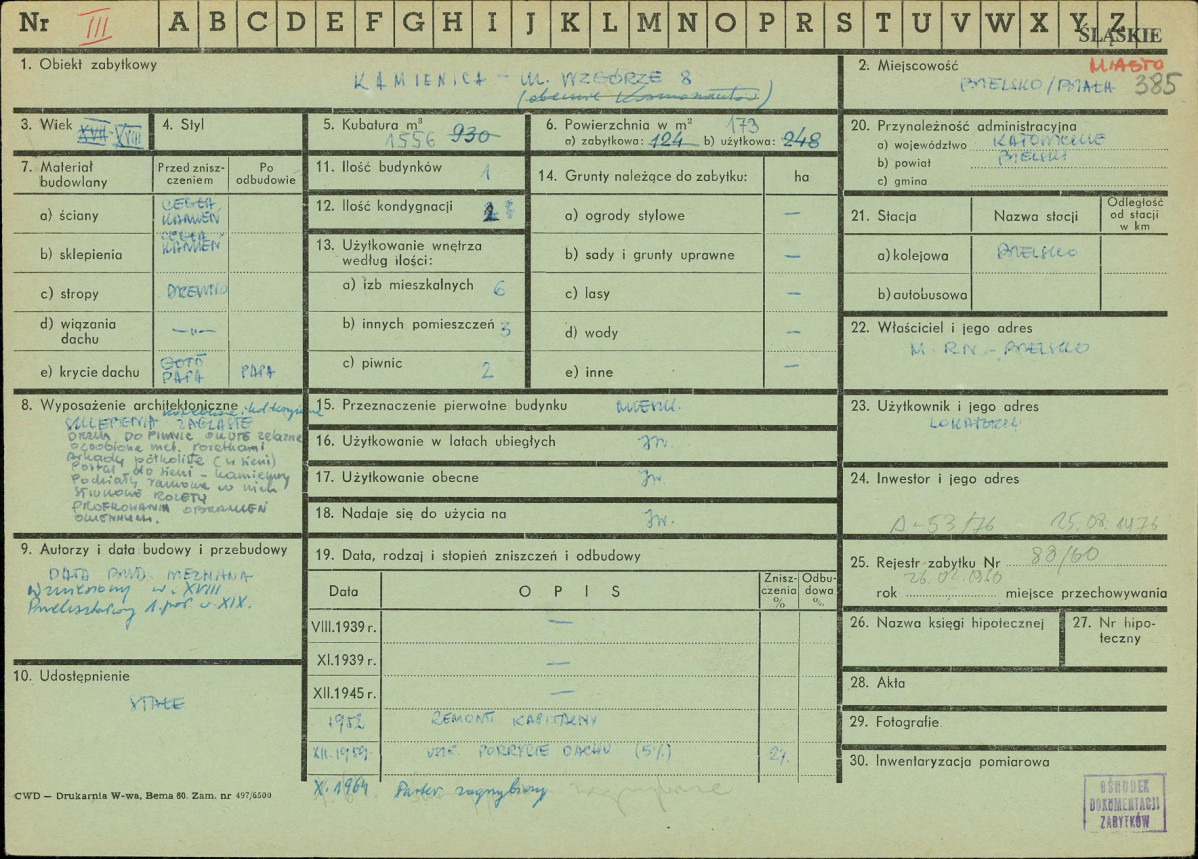 Nr III A B C D E F G H I J K L M N O P R S T U V W X Y Z ŚLĄSKIE
1. Obiekt zabytkowy
KAMIENICA – UL. WZGÓRZE 8
(obecnie Kosmonautów)
2. Miejscowość MIASTO
BIELSKO/BIAŁA 385
3. Wiek XVII XVIII
4. Styl
5. Kubatura m³
1556 930
6. Powierzchnia w m² 173
a) zabytkowa: 124 b) użytkowa: 248
20. Przynależność administracyjna
a) województwo KATOWICKIE
b) powiat BIELSKI
c) gmina
7. Materiał budowlany
Przed zniszczeniem
Po odbudowie
a) ściany CEGŁA, KAMIEŃ
b) sklepienia CEGŁA KAMIEŃ
c) stropy DREWNO
d) wiązania dachu —„—
e) krycie dachu GONT PAPA PAPA
11. Ilość budynków 1
12. Ilość kondygnacji 2
13. Użytkowanie wnętrza
według ilości:
a) izb mieszkalnych 6
b) innych pomieszczeń 3
c) piwnic 2
14. Grunty należące do zabytku: ha
a) ogrody stylowe —
b) sady i grunty uprawne —
c) lasy —
d) wody —
e) inne —
21. Stacja Nazwa stacji Odległość od stacji w km
a) kolejowa BIELSKO
b) autobusowa
22. Właściciel i jego adres
M.R.N. – BIELSKO
8. Wyposażenie architektoniczne
kolebkowe i
SKLEPIENIA ŻAGLASTE
DRZWI DO PIWNIC OKUTE żelazne
ozdobione met. rozetkami
Arkady półkoliste (w sieni)
Portal do sieni – kamienny
Podziały ramowe w nich
STIUKOWE ROZETY
PROFILOWANIA OBRAMIEŃ
OKIENNYCH.
15. Przeznaczenie pierwotne budynku MIESZK.
16. Użytkowanie w latach ubiegłych Jw.
17. Użytkowanie obecne Jw.
18. Nadaje się do użycia na Jw.
23. Użytkownik i jego adres
LOKATORZY
24. Inwestor i jego adres
A-53/76 25.08.1976
9. Autorzy i data budowy i przebudowy
DATA BUD. NIEZNANA
Wzniesiony w. XVIII
Przekształcony 1. poł w. XIX.
19. Data, rodzaj i stopień zniszczeń i odbudowy
Data O P I S Zniszczenia % Odbudowa %
VIII.1939 r. —
XI.1939 r. —
XII.1945 r. —
1952 REMONT KAPITALNY
XII.1959. USZK. POKRYCIE DACHU (5%) 2%
X.1964 Parter zagrzybiony zagrzybione
25. Rejestr zabytku Nr 88/60
26.02.1960
rok miejsce przechowywania
26. Nazwa księgi hipotecznej
27. Nr hipoteczny
10. Udostępnienie
STAŁE
28. Akta
29. Fotografie
30. Inwentaryzacja pomiarowa
CWD — Drukarnia W-wa, Bema 60. Zam. nr 497/6500
OŚRODEK
DOKUMENTACJI
ZABYTKÓW